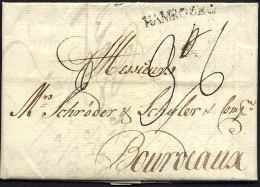 HAMBOURG
36
Messieurs
Mrs Schröder & Schyler & Compe
Bourdeaux